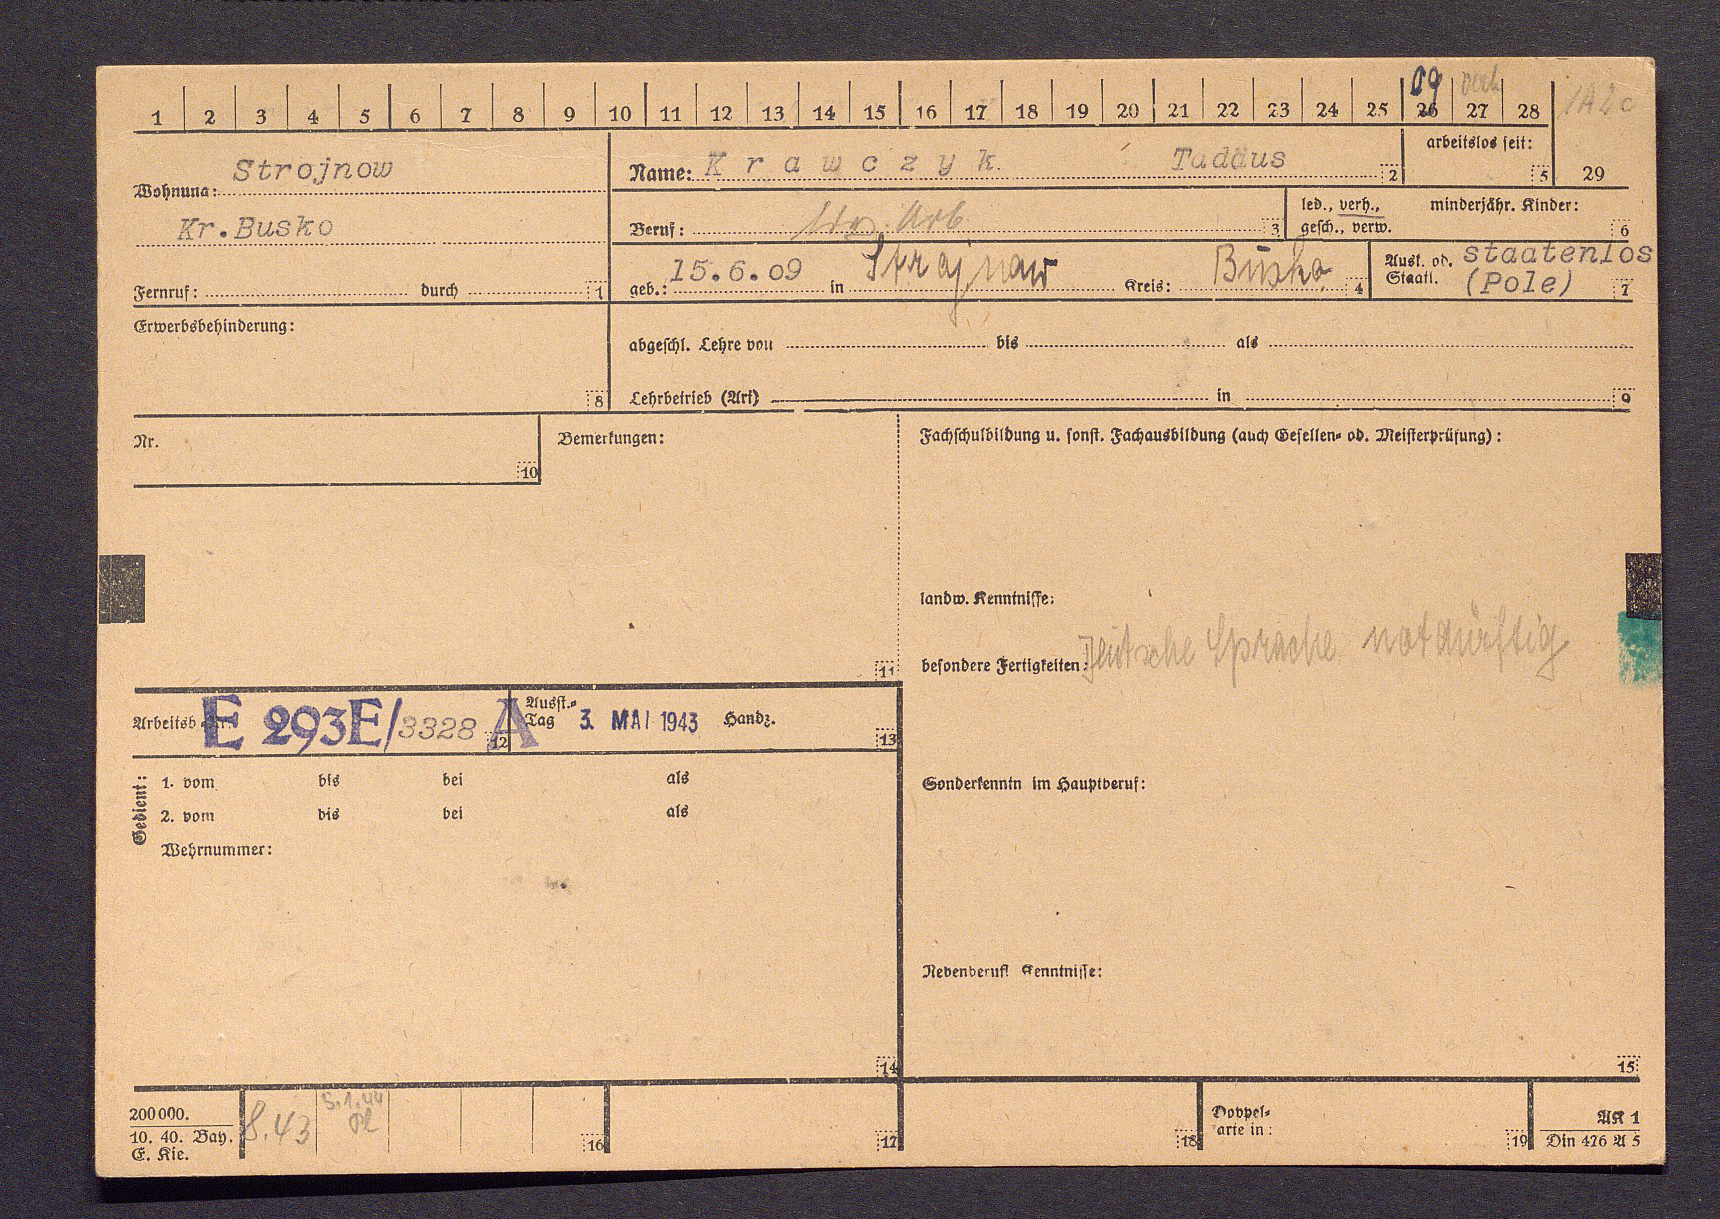 1 2 3 4 5 6 7 8 9 10 11 12 13 14 15 16 17 18 19 20 21 22 23 24 25 26 27 28
09 verh
Strojnow
Wohnung:
Kr.Busko
Fernruf: durch 1
Name: Krawczyk Tadäus 2
arbeitslos seit: 5
29
Beruf: Arb. 3
led., verh., gesch., verw.
minderjähr. Kinder: 6
geb.: 15.6.09 in Strojnow Kreis: Busko 4
Ausl. od. Staatl. staatenlos (Pole) 7
Erwerbsbehinderung: 8
abgeschl. Lehre von bis als
Lehrbetrieb (Art) in 9
Nr. 10
Bemerkungen: 11
Fachschulbildung u. sonst. Fachausbildung (auch Gesellen- od. Meisterprüfung):
landw. Kenntnisse:
besondere Fertigkeiten: Deutsche Sprache notdürftig
Arbeitsb. E 293E/3328 A 12
Ausst.-Tag 3. MAI 1943 Handz. 13
Gedient:
1. vom bis bei als
2. vom bis bei als
Wehrnummer:
14
Sonderkenntn im Hauptberuf:
Nebenberufl Kenntnisse:
15
200000.
10. 40. Bay.
E. Kie.
8.43
5.1.44
16 17 18
Doppel-
arte in: 19
AK 1
Din 476 A 5